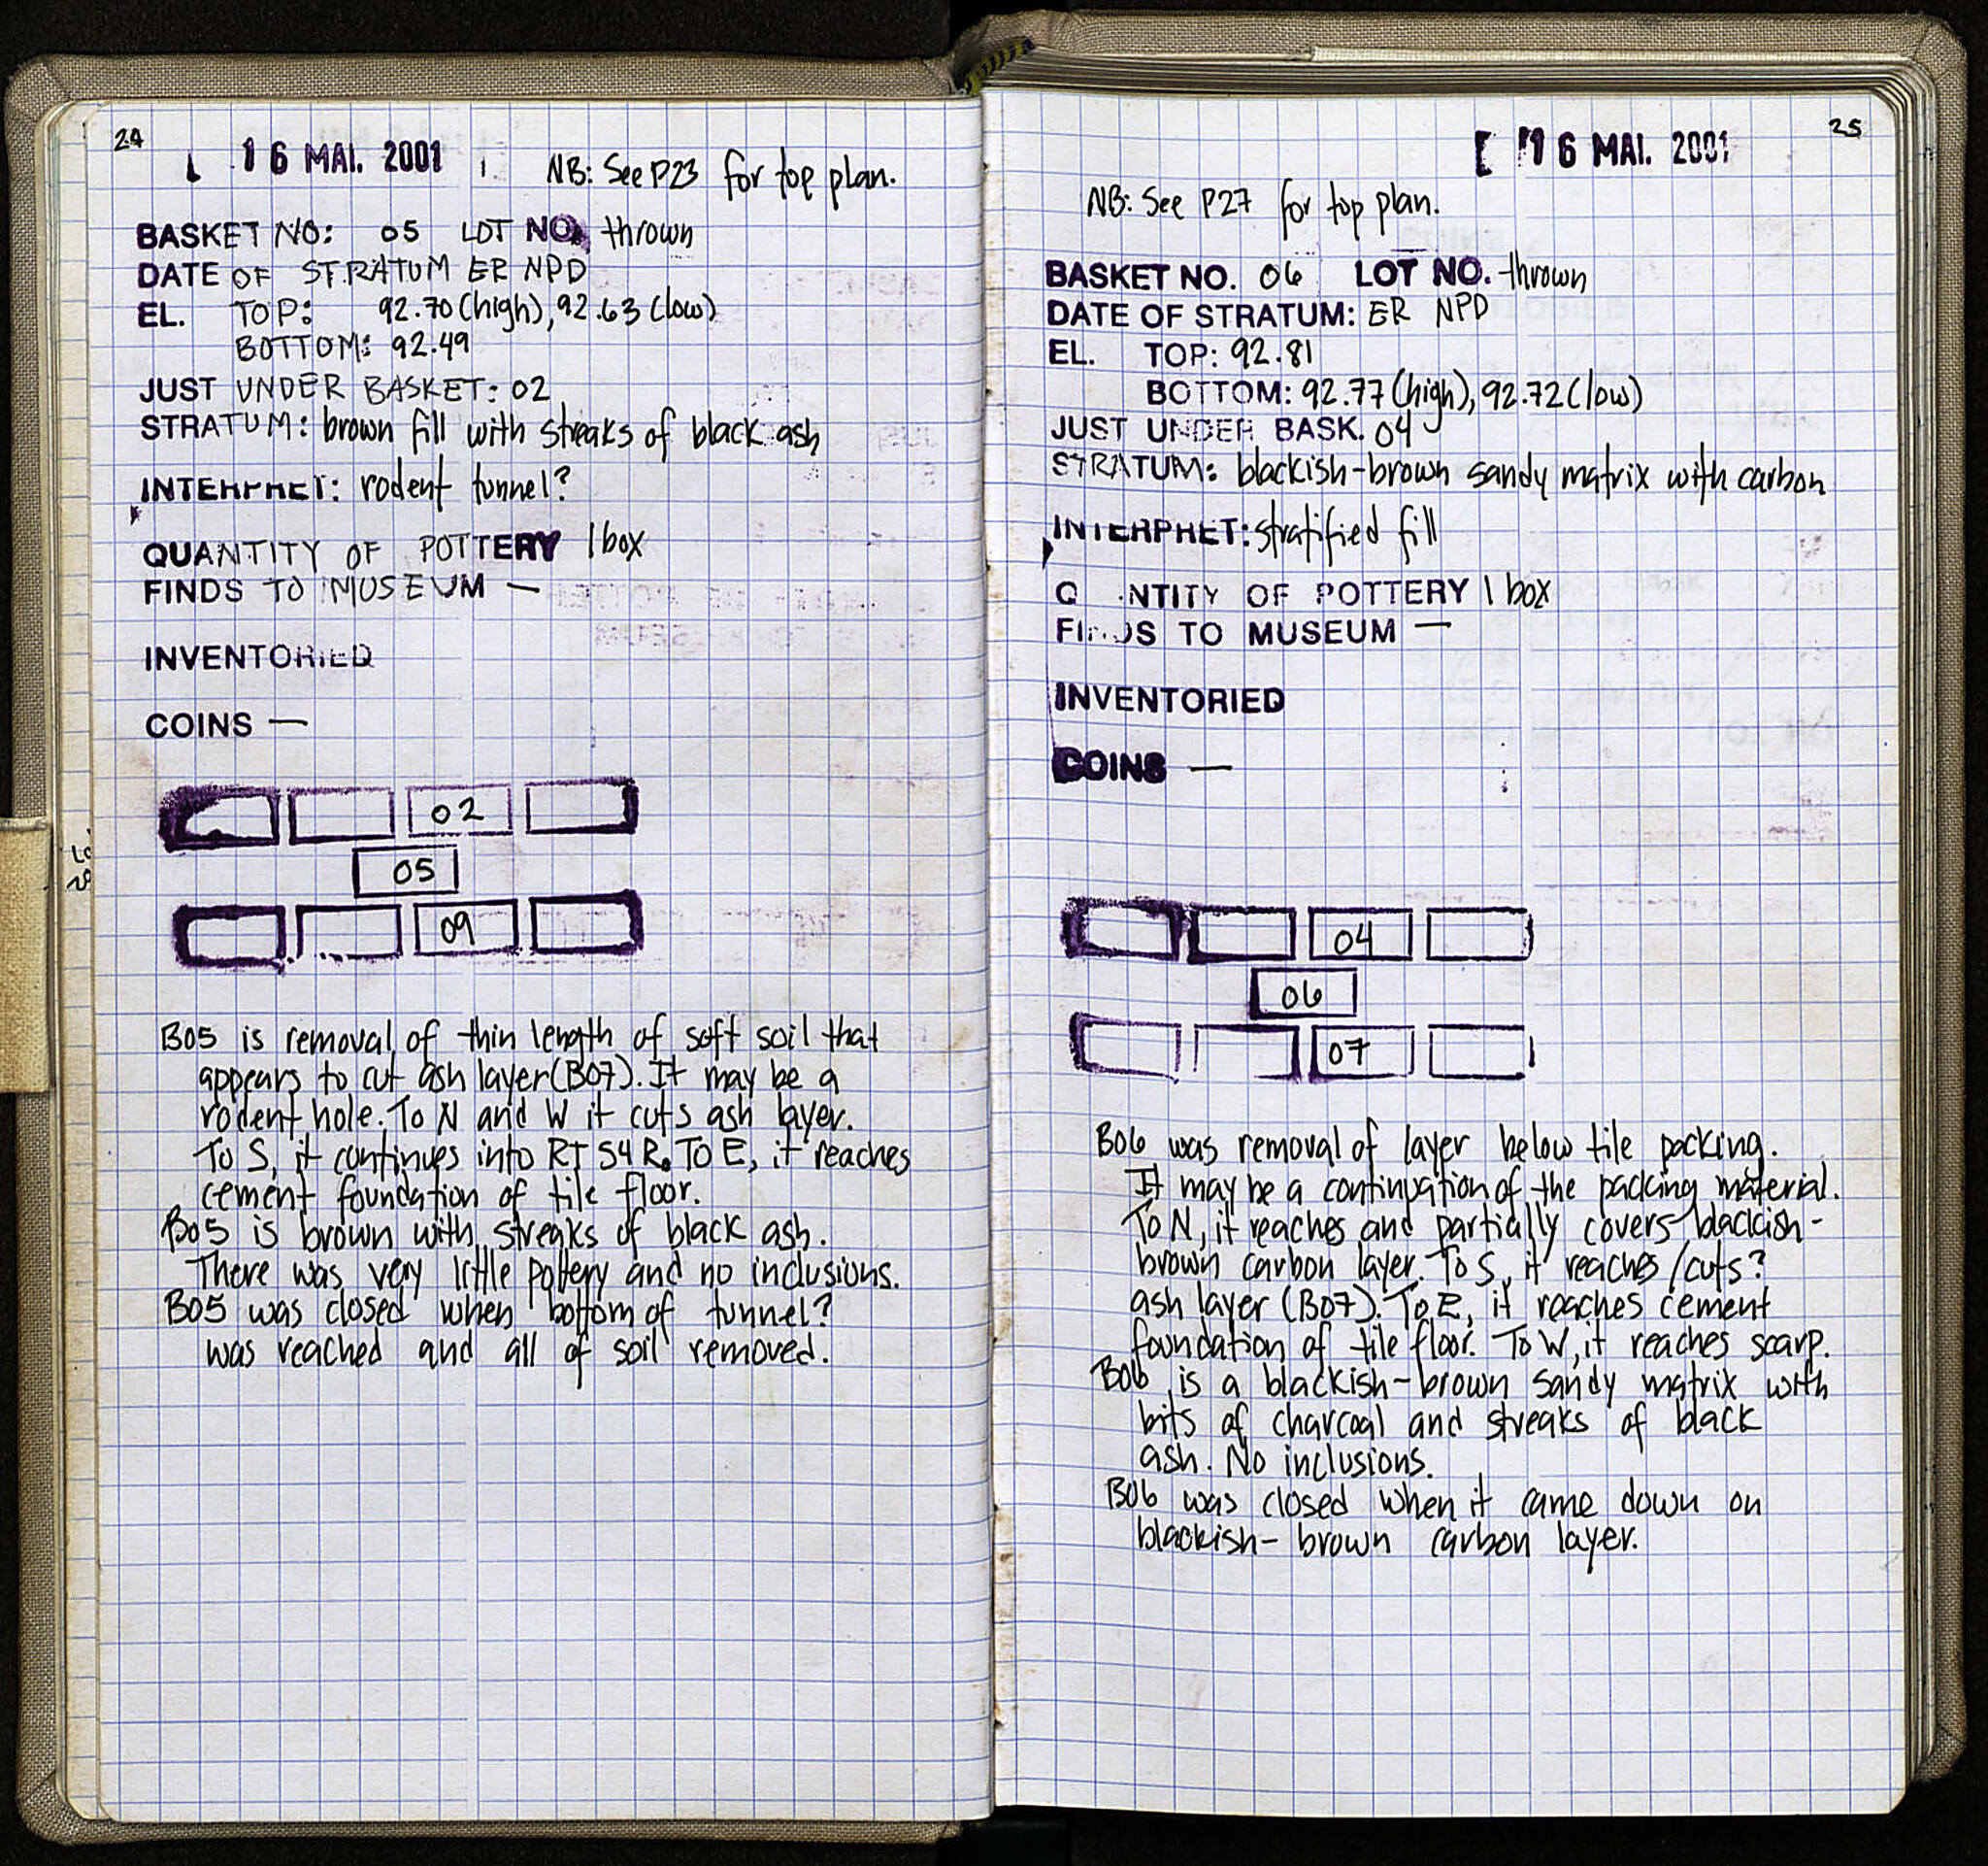 24
16 MAI. 2001
NB: See P23 for top plan.
BASKET NO: 05 LOT NO. thrown
DATE OF STRATUM ER NPD
EL. TOP: 92.70 (high), 92.63 (low)
BOTTOM: 92.49
JUST UNDER BASKET: 02
STRATUM: brown fill with streaks of black ash
INTERPRET: rodent tunnel?
QUANTITY OF POTTERY 1 box
FINDS TO MUSEUM —
INVENTORIED
COINS —
02
05
09
B05 is removal of thin length of soft soil that
appears to cut ash layer (B07). It may be a
rodent hole. To N and W it cuts ash layer.
To S, it continues into RT 54 R. To E, it reaches
cement foundation of tile floor.
B05 is brown with streaks of black ash.
There was very little pottery and no inclusions.
B05 was closed when bottom of tunnel?
was reached and all of soil removed.
25
16 MAI. 2001
NB: See P27 for top plan.
BASKET NO. 06 LOT NO. thrown
DATE OF STRATUM: ER NPD
EL. TOP: 92.81
BOTTOM: 92.77 (high), 92.72 (low)
JUST UNDER BASK. 04
STRATUM: blackish-brown sandy matrix with carbon
INTERPRET: stratified fill
QUANTITY OF POTTERY 1 box
FINDS TO MUSEUM —
INVENTORIED
COINS —
04
06
07
B06 was removal of layer below tile packing.
It may be a continuation of the packing material.
To N, it reaches and partially covers blackish-
brown carbon layer. To S, it reaches/cuts?
ash layer (B07). To E, it reaches cement
foundation of tile floor. To W, it reaches scarp.
B06 is a blackish-brown sandy matrix with
bits of charcoal and streaks of black
ash. No inclusions.
B06 was closed when it came down on
blackish-brown carbon layer.